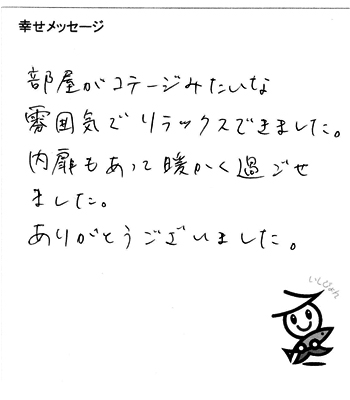 幸せメッセージ
部屋がコテージみたいな
雰囲気でリラックスできました。
内扉もあって暖かく過ごせ
ました。
ありがとうございました。
いしぴょん